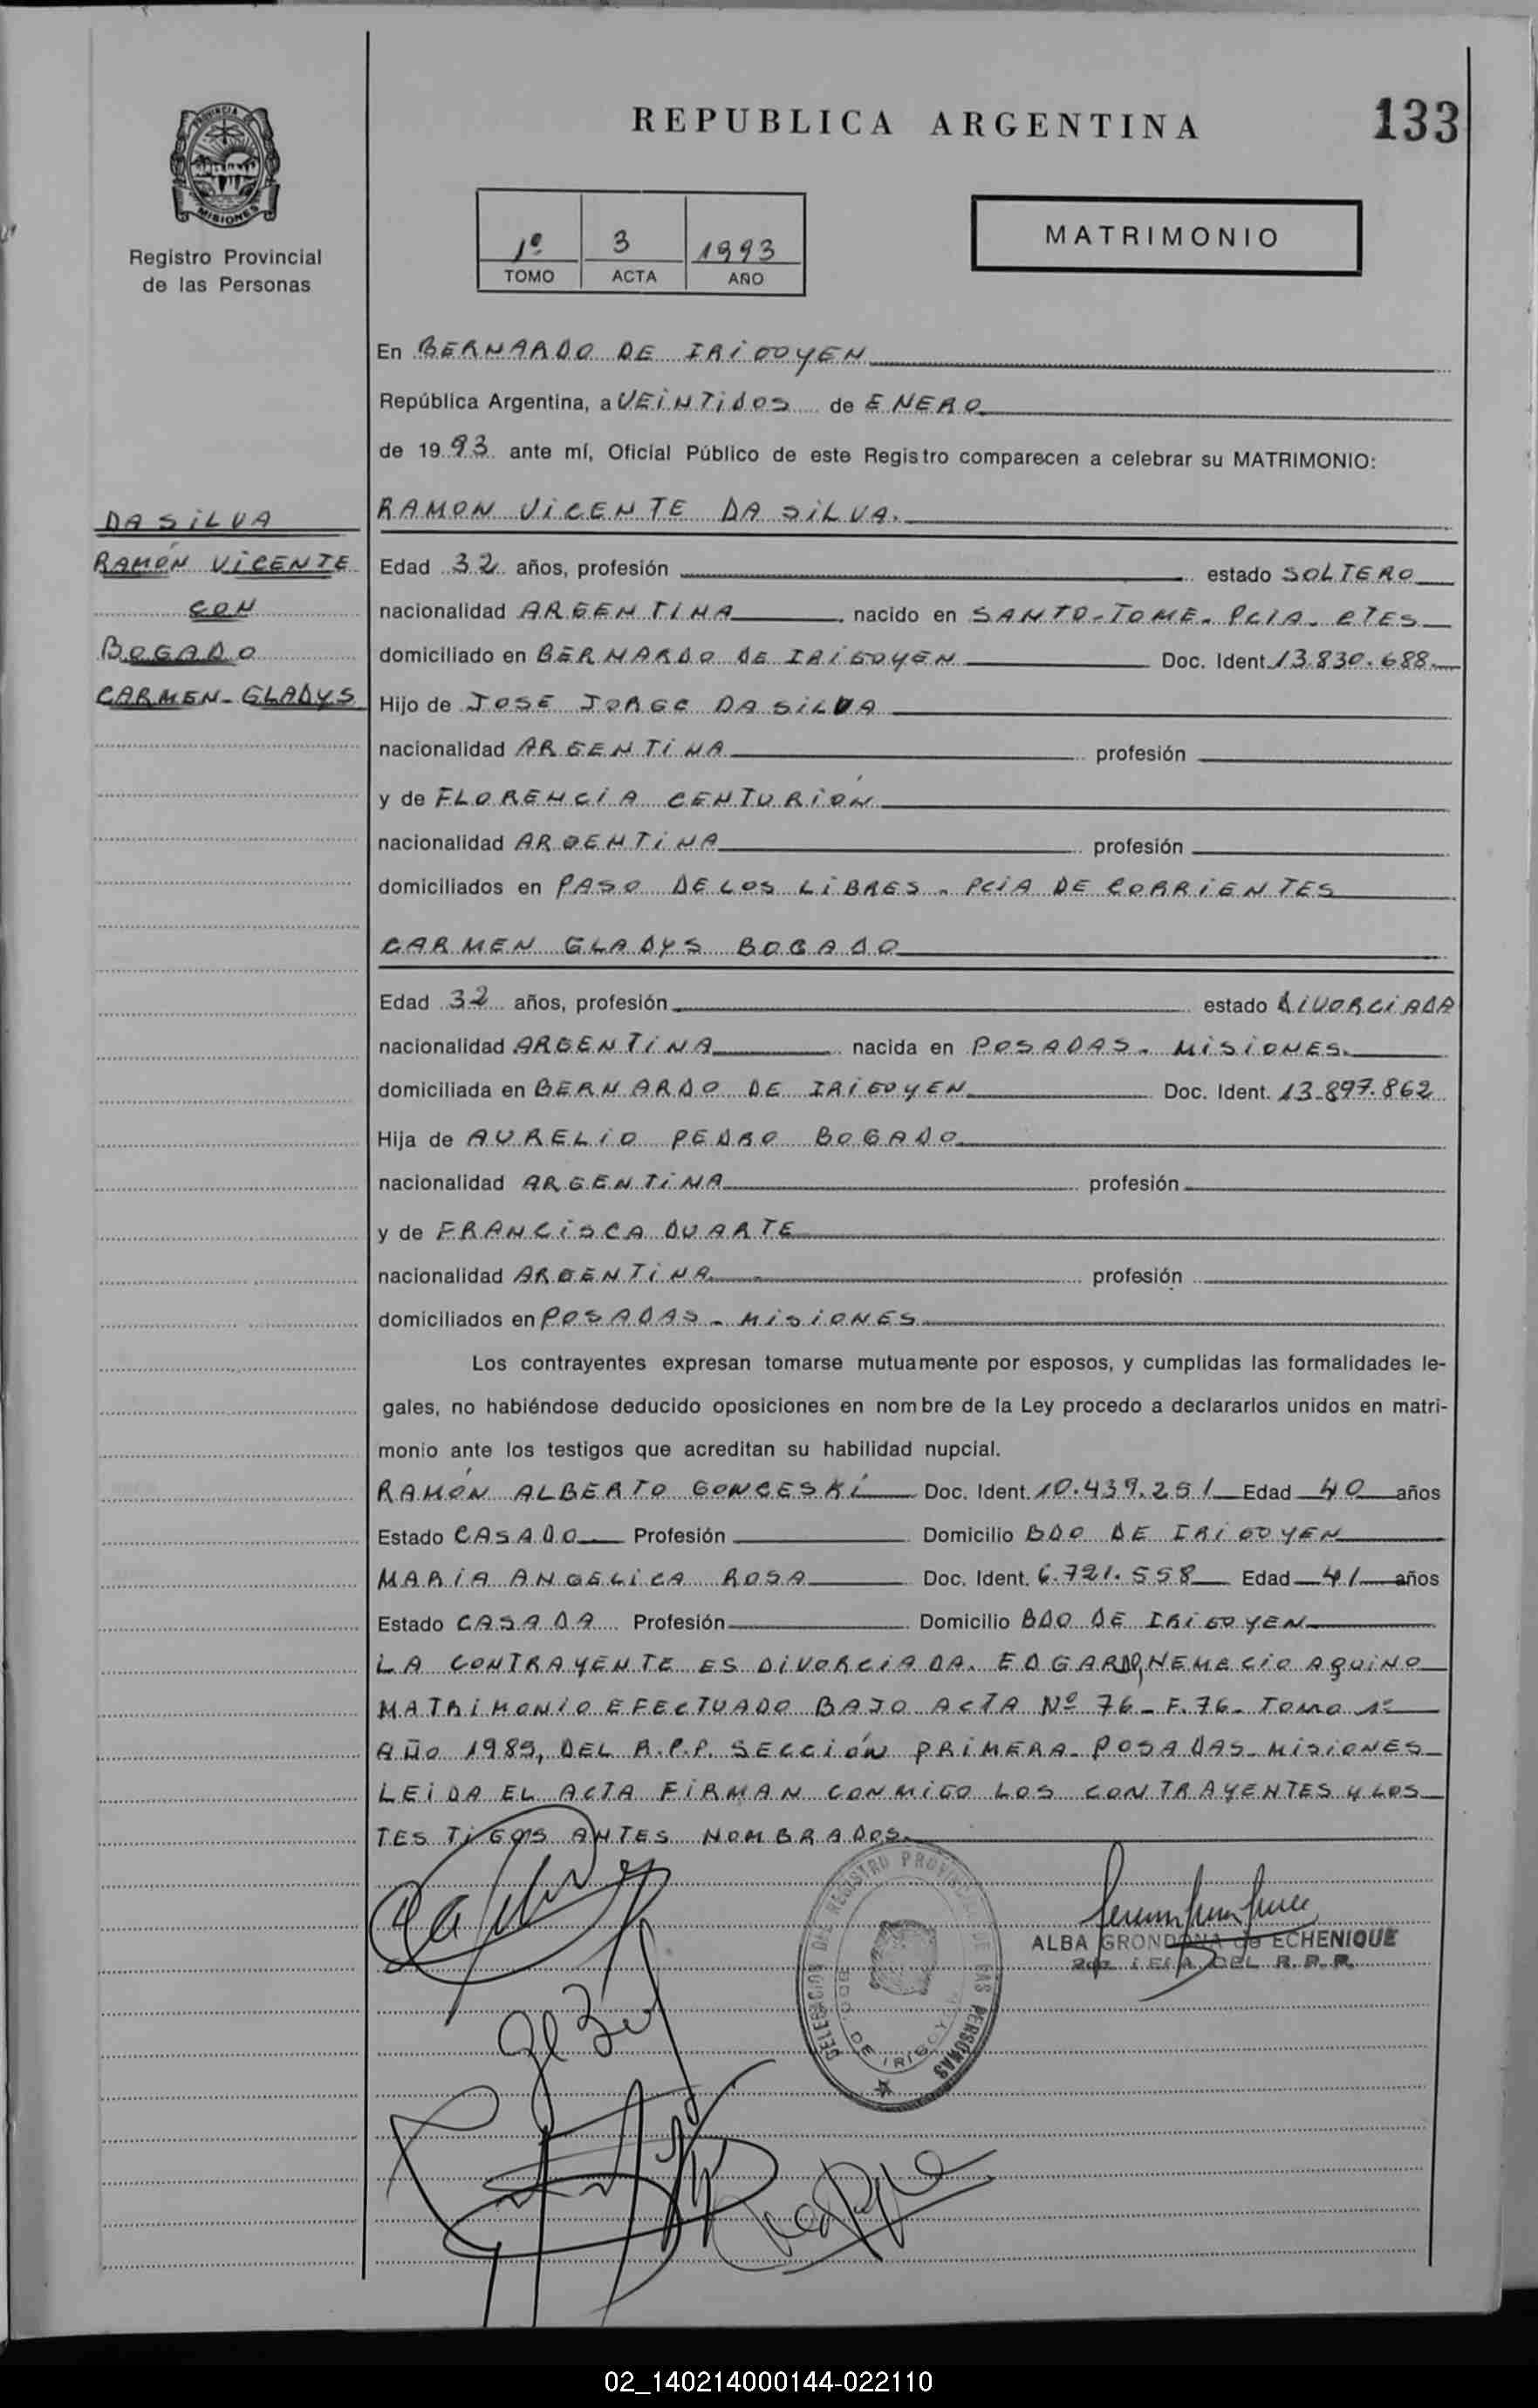 REPUBLICA ARGENTINA
133
PROVINCIA DE
MISIONES
Registro Provincial
de las Personas
1º 3 1993
TOMO ACTA AÑO
MATRIMONIO
En BERNARDO DE IRIGOYEN
República Argentina, a VEINTIDOS de ENERO
de 1993 ante mí, Oficial Público de este Registro comparecen a celebrar su MATRIMONIO:
DA SILVA
RAMÓN VICENTE
CON
BOGADO
CARMEN-GLADYS
RAMON VICENTE DA SILVA.
Edad 32 años, profesión estado SOLTERO
nacionalidad ARGENTINA, nacido en SANTO-TOME- PCIA- CTES
domiciliado en BERNARDO DE IRIGOYEN Doc. Ident. 13.830.688.
Hijo de JOSE JORGE DA SILVA
nacionalidad ARGENTINA profesión
y de FLORENCIA CENTURIÓN
nacionalidad ARGENTINA profesión
domiciliados en PASO DE LOS LIBRES - PCIA DE CORRIENTES
CARMEN GLADYS BOGADO
Edad 32 años, profesión estado DIVORCIADA
nacionalidad ARGENTINA nacida en POSADAS- MISIONES.
domiciliada en BERNARDO DE IRIGOYEN Doc. Ident. 13.897.862
Hija de AURELIO PEDRO BOGADO
nacionalidad ARGENTINA profesión
y de FRANCISCA DUARTE
nacionalidad ARGENTINA profesión
domiciliados en POSADAS - MISIONES
Los contrayentes expresan tomarse mutuamente por esposos, y cumplidas las formalidades le-
gales, no habiéndose deducido oposiciones en nombre de la Ley procedo a declararlos unidos en matri-
monio ante los testigos que acreditan su habilidad nupcial.
RAMÓN ALBERTO GONCESKI Doc. Ident. 10.439.251 Edad 40 años
Estado CASADO Profesión Domicilio BDO DE IRIGOYEN
MARIA ANGELICA ROSA Doc. Ident. 6.721.558 Edad 41 años
Estado CASADA Profesión Domicilio BDO DE IRIGOYEN
LA CONTRAYENTE ES DIVORCIADA. EDGARDO, NEMECIO AQUINO
MATRIMONIO EFECTUADO BAJO ACTA Nº 76- F.76- TOMO 1º
AÑO 1985, DEL R.P.P. SECCIÓN PRIMERA- POSADAS- MISIONES
LEIDA EL ACTA FIRMAN CONMIGO LOS CONTRAYENTES Y LOS
TESTIGOS ANTES NOMBRADOS.
DELEGACION DEL REGISTRO PROVINCIAL DE LAS PERSONAS
BDO. DE IRIGOYEN
ALBA GRONDONA de ECHENIQUE
JEFA DEL R.P.P.
02_140214000144-022110